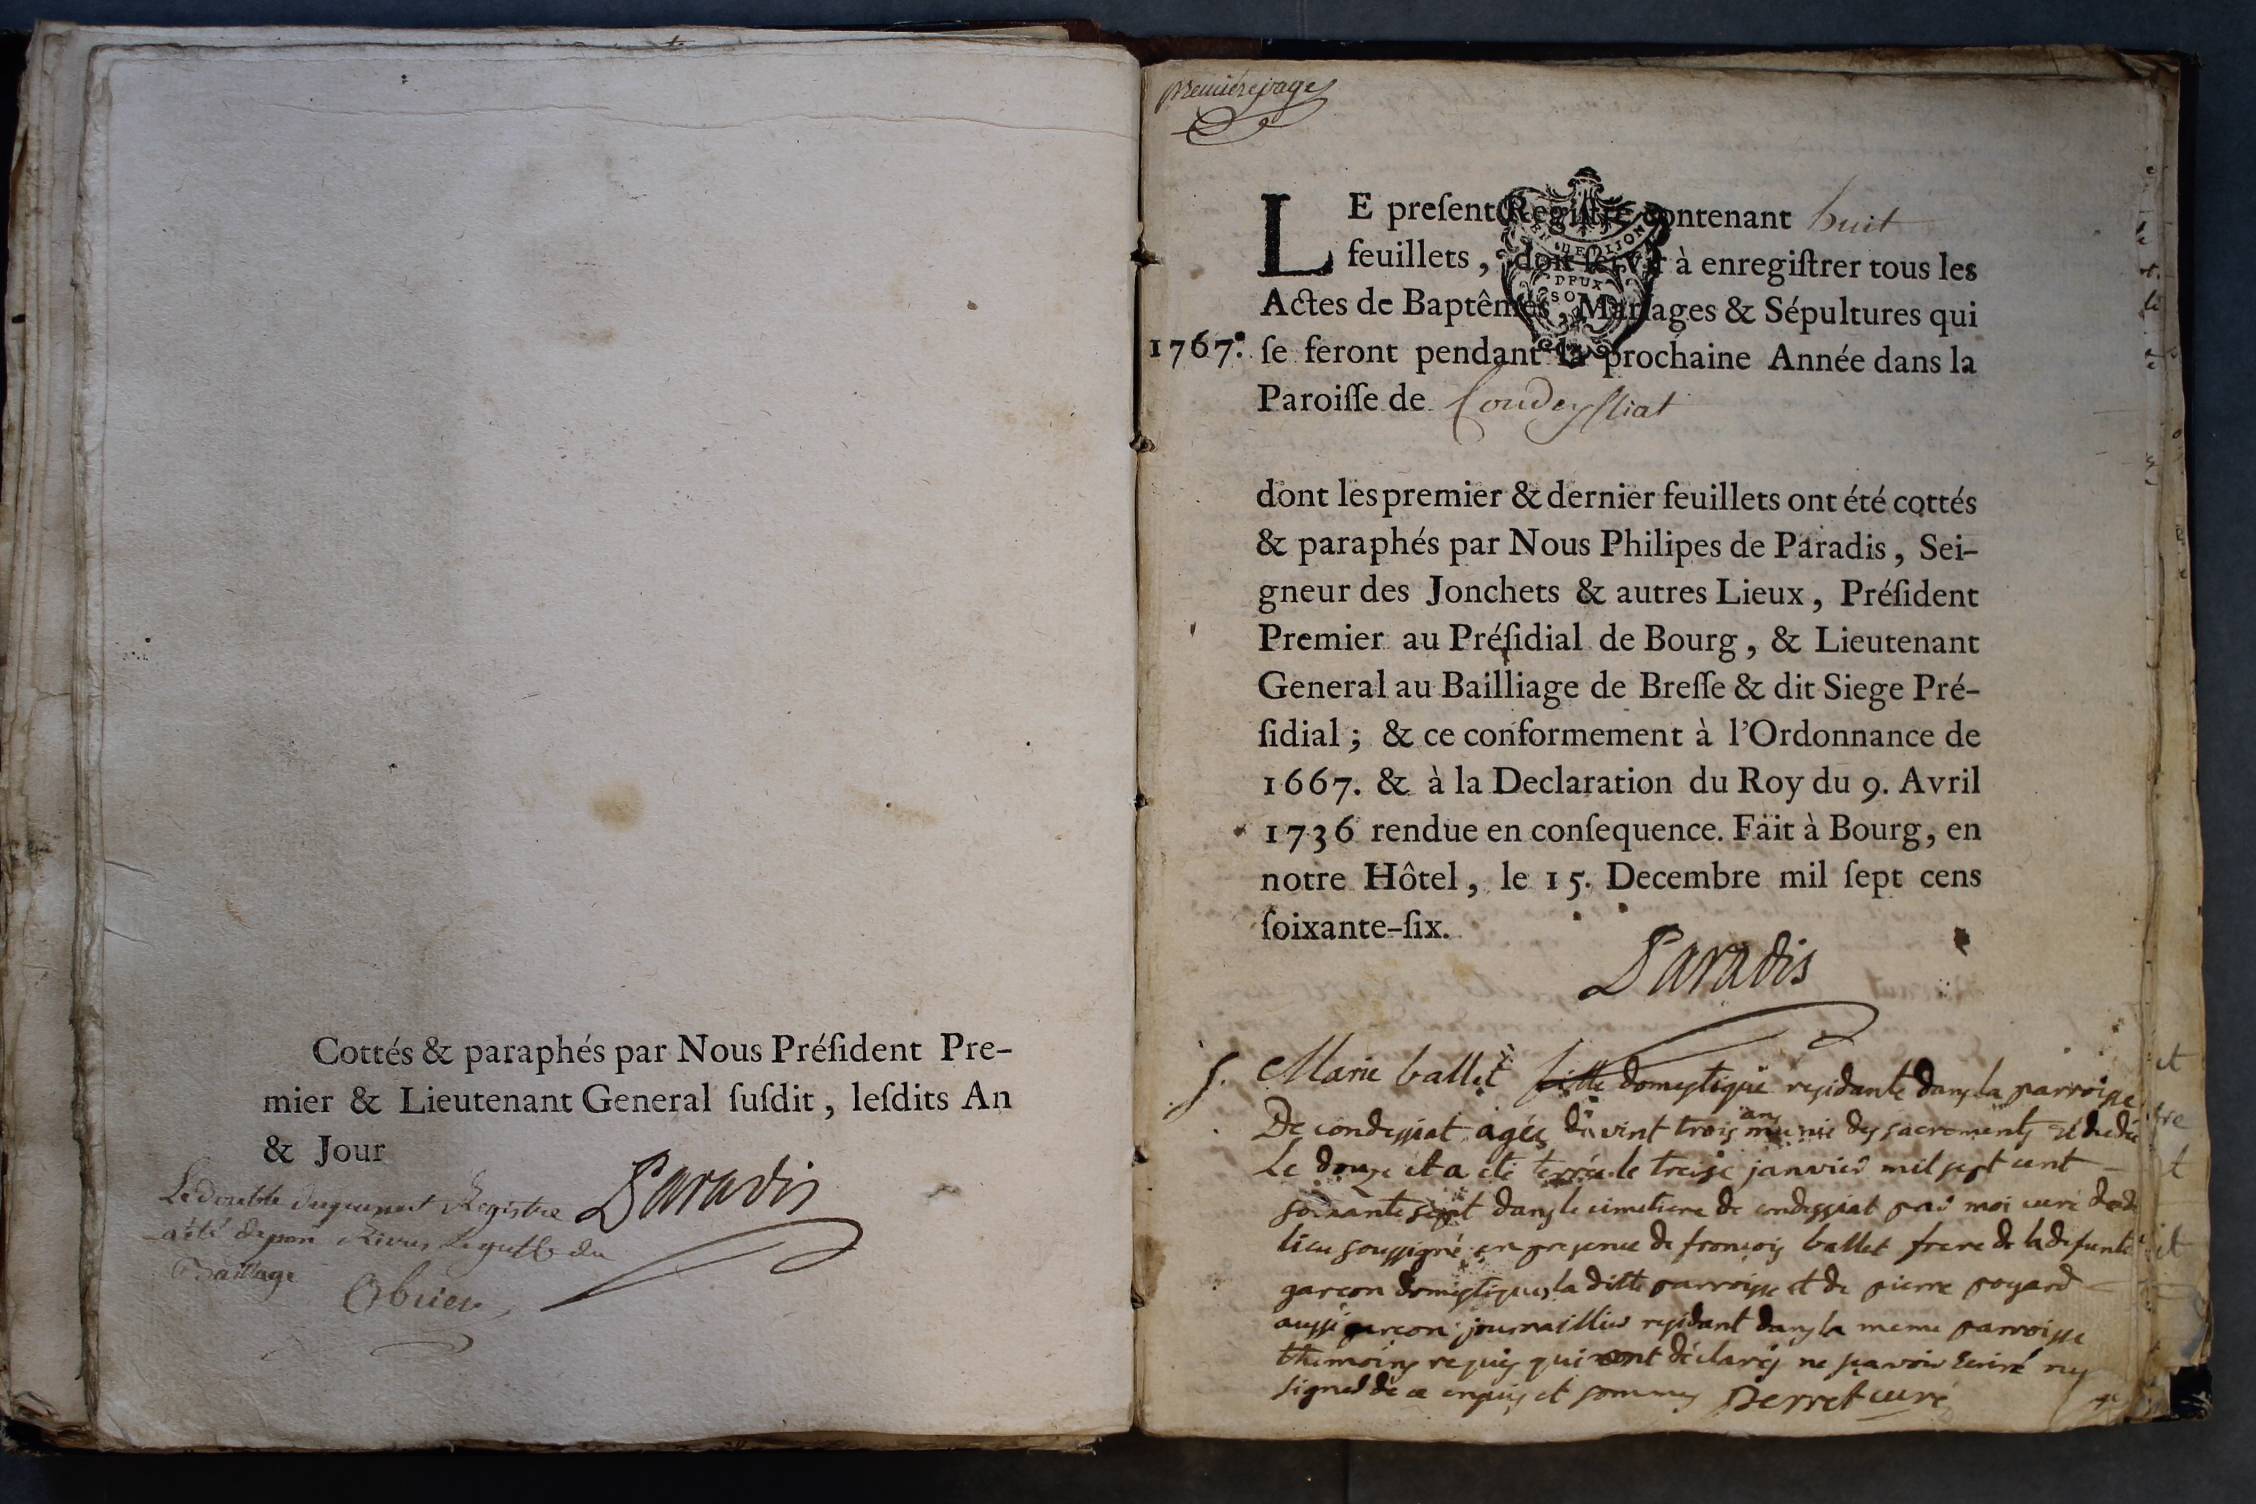 Cottés & paraphés par Nous Préſident Pre-
mier & Lieutenant General ſuſdit, leſdits An
& Jour
Paradis
Le double du present Registre
a été deposé Rieres le greffe du
Bailliage
premiere page
LE preſent Regiſtre contenant huit
feuillets, doit ſervir à enregiſtrer tous les
Actes de Baptêmes, Mariages & Sépultures qui
1767. ſe feront pendant la prochaine Année dans la
Paroiſſe de Condeyſſiat
dont les premier & dernier feuillets ont été cottés
& paraphés par Nous Philipes de Paradis, Sei-
gneur des Jonchets & autres Lieux, Préſident
Premier au Préſidial de Bourg, & Lieutenant
General au Bailliage de Breſſe & dit Siege Pré-
ſidial; & ce conformement à l'Ordonnance de
1667. & à la Declaration du Roy du 9. Avril
1736 rendue en conſequence. Fait à Bourg, en
notre Hôtel, le 15. Decembre mil ſept cens
ſoixante-ſix.
Paradis
S. Marie ballet fille domestique residante dans la parroisse
De condessiat agée de vint trois ans munie des sacrements
Le douze et a eté terrée le treize janvier mil sept cent
soixante sept dans le cimetiere de condessiat par moi curé dudi
lieu soussigné en presence de francois ballet frere de la defunte
garcon domestique la ditte parroisse et de pierre poyard
aussi garcon journaillier residant dans la meme parroisse
themoins requis qui ont déclarés ne scavoir Ecrire ny
signer de ce enquis et sommes Perret curé